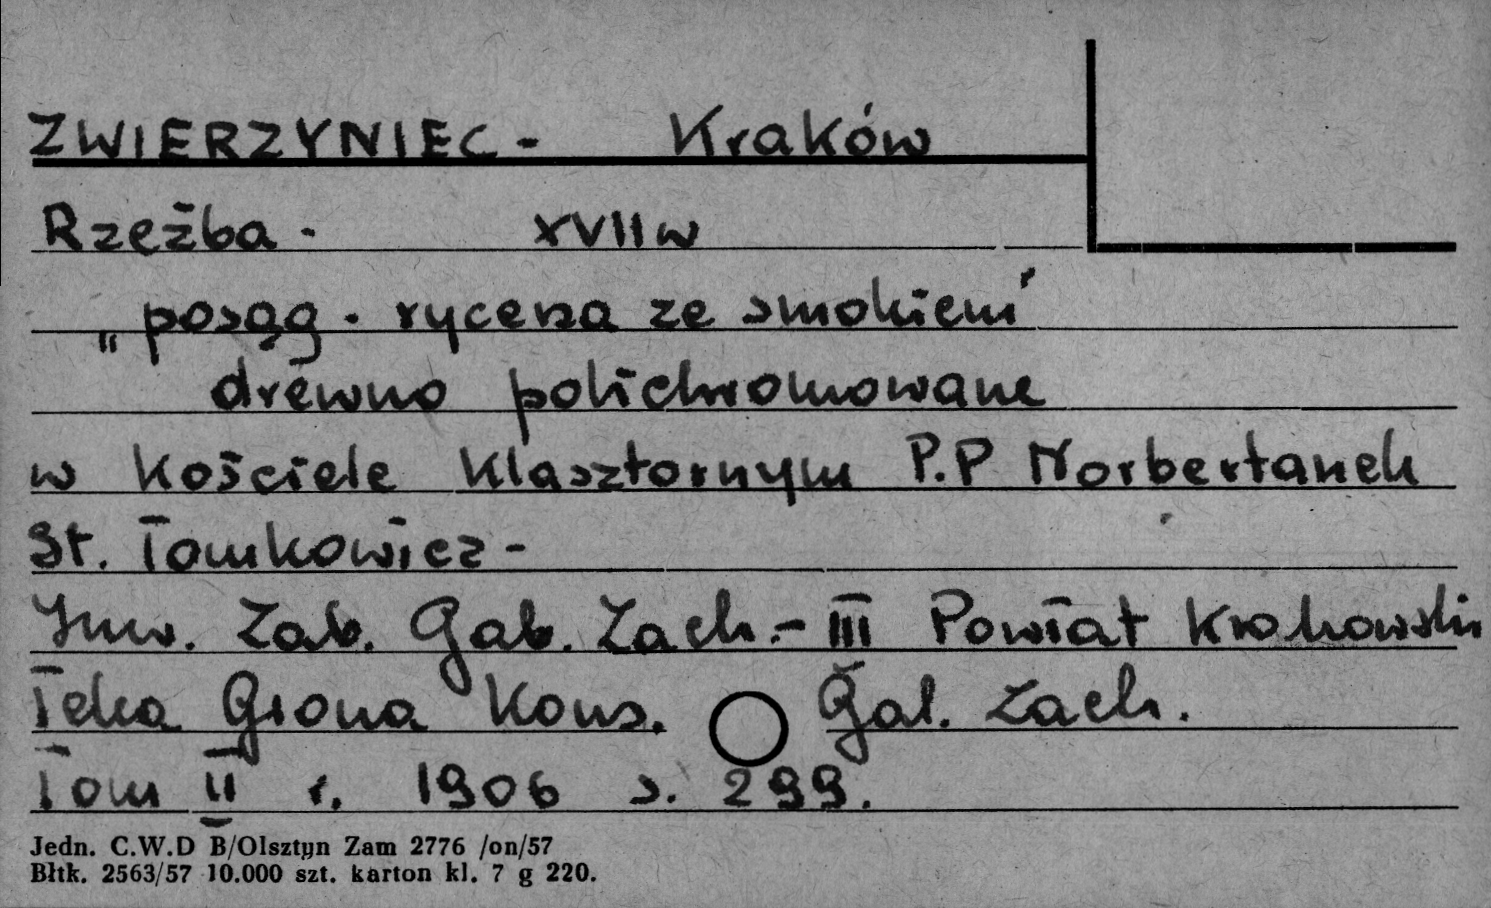 ZWIERZYNIEC - Kraków
Rzeźba - XVII w
„posąg - rycerza ze smokiem"
drewno polichromowane
w kościele klasztornym P.P Norbertanek
St. Tomkowicz -
Inw. Zab. Gab. Zach. - III Powiat Krakowski
Teka Grona Kons. Gal. Zach.
Tom II r. 1906 s. 299.
Jedn. C.W.D B/Olsztyn Zam 2776 /on/57
Błtk. 2563/57 10.000 szt. karton kl. 7 g 220.